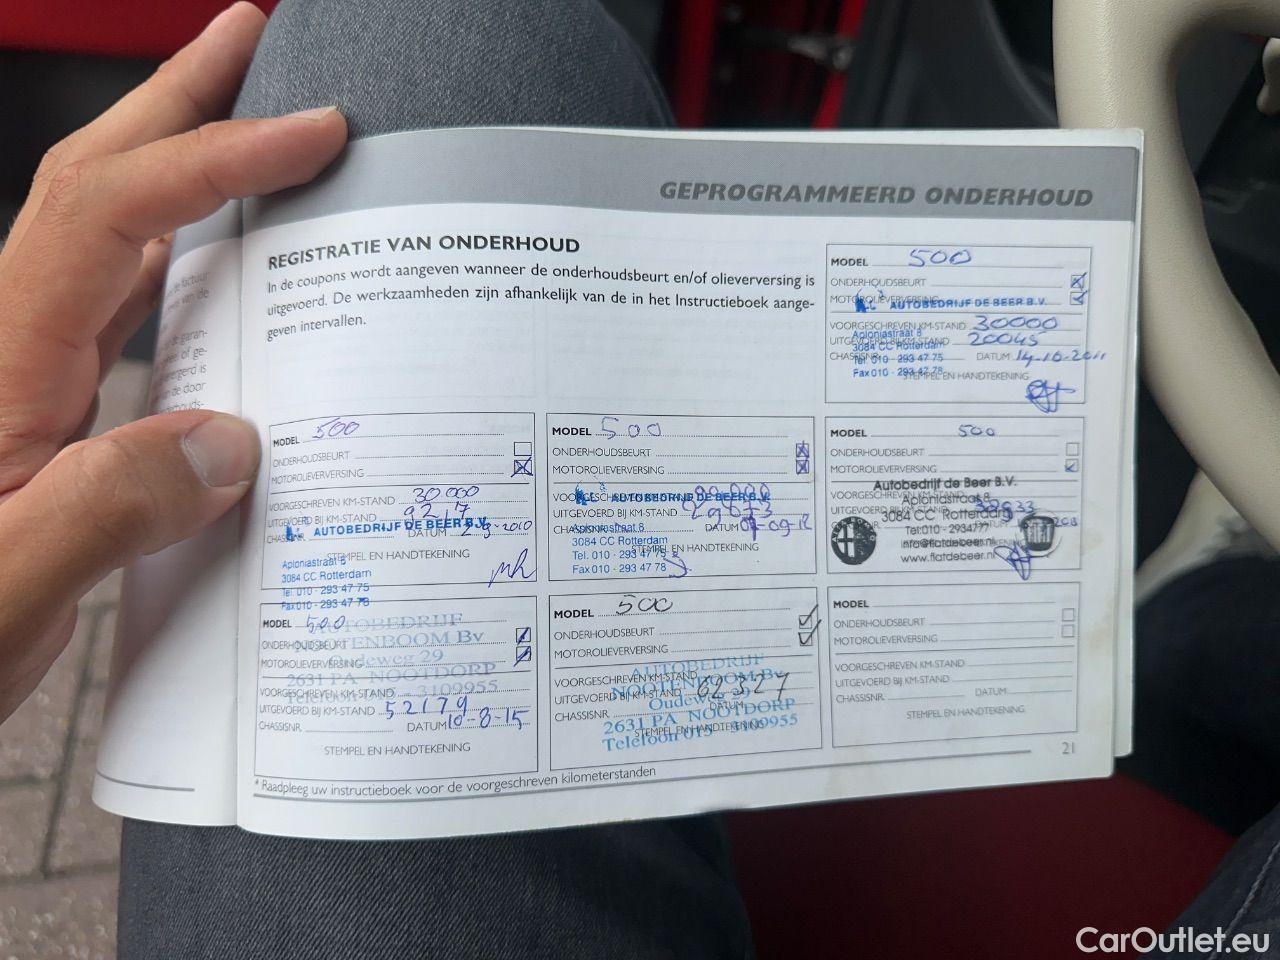 GEPROGRAMMEERD ONDERHOUD
REGISTRATIE VAN ONDERHOUD
In de coupons wordt aangeven wanneer de onderhoudsbeurt en/of olieverversing is
uitgevoerd. De werkzaamheden zijn afhankelijk van de in het Instructieboek aange-
geven intervallen.
MODEL 500
ONDERHOUDSBEURT
MOTOROLIEVERVERSING
AUTOBEDRIJF DE BEER B.V.
VOORGESCHREVEN KM-STAND 30000
Aploniastraat 8
UITGEVOERD BIJ KM-STAND 20045
3084 CC Rotterdam
CHASSISNR. DATUM 14-10-2011
Tel. 010 - 293 47 75
Fax 010 - 293 47 78
STEMPEL EN HANDTEKENING
MODEL 500
ONDERHOUDSBEURT
MOTOROLIEVERVERSING
VOORGESCHREVEN KM-STAND 30000
UITGEVOERD BIJ KM-STAND 9217
AUTOBEDRIJF DE BEER B.V.
DATUM 2-9-2010
STEMPEL EN HANDTEKENING
Aploniastraat 8
3084 CC Rotterdam
Tel. 010 - 293 47 75
Fax 010 - 293 47 78
MODEL 500
ONDERHOUDSBEURT
MOTOROLIEVERVERSING
VOORGESCHREVEN KM-STAND
AUTOBEDRIJF DE BEER B.V.
UITGEVOERD BIJ KM-STAND
CHASSISNR. DATUM 07-09-12
Aploniastraat 8
3084 CC Rotterdam
STEMPEL EN HANDTEKENING
Tel. 010 - 293 47 75
Fax 010 - 293 47 78
MODEL 500
ONDERHOUDSBEURT
MOTOROLIEVERVERSING
Autobedrijf de Beer B.V.
Aploniastraat 8
3084 CC Rotterdam
Tel:010 - 2934777
info@fiatdebeer.nl
www.fiatdebeer.nl
MODEL 500
AUTOBEDRIJF
ONDERHOUDSBEURT
NOOTENBOOM Bv
MOTOROLIEVERVERSING
Oudeweg 29
2631 PA NOOTDORP
VOORGESCHREVEN KM-STAND
Telefoon 3109955
UITGEVOERD BIJ KM-STAND 52179
CHASSISNR. DATUM 10-8-15
STEMPEL EN HANDTEKENING
MODEL 500
ONDERHOUDSBEURT
MOTOROLIEVERVERSING
AUTOBEDRIJF
VOORGESCHREVEN KM-STAND
NOOTENBOOM Bv
UITGEVOERD BIJ KM-STAND 62327
Oudeweg 29
CHASSISNR. DATUM
2631 PA NOOTDORP
STEMPEL EN HANDTEKENING
Telefoon 015 3109955
MODEL
ONDERHOUDSBEURT
MOTOROLIEVERVERSING
VOORGESCHREVEN KM-STAND
UITGEVOERD BIJ KM-STAND
CHASSISNR. DATUM
STEMPEL EN HANDTEKENING
* Raadpleeg uw instructieboek voor de voorgeschreven kilometerstanden
21
CarOutlet.eu